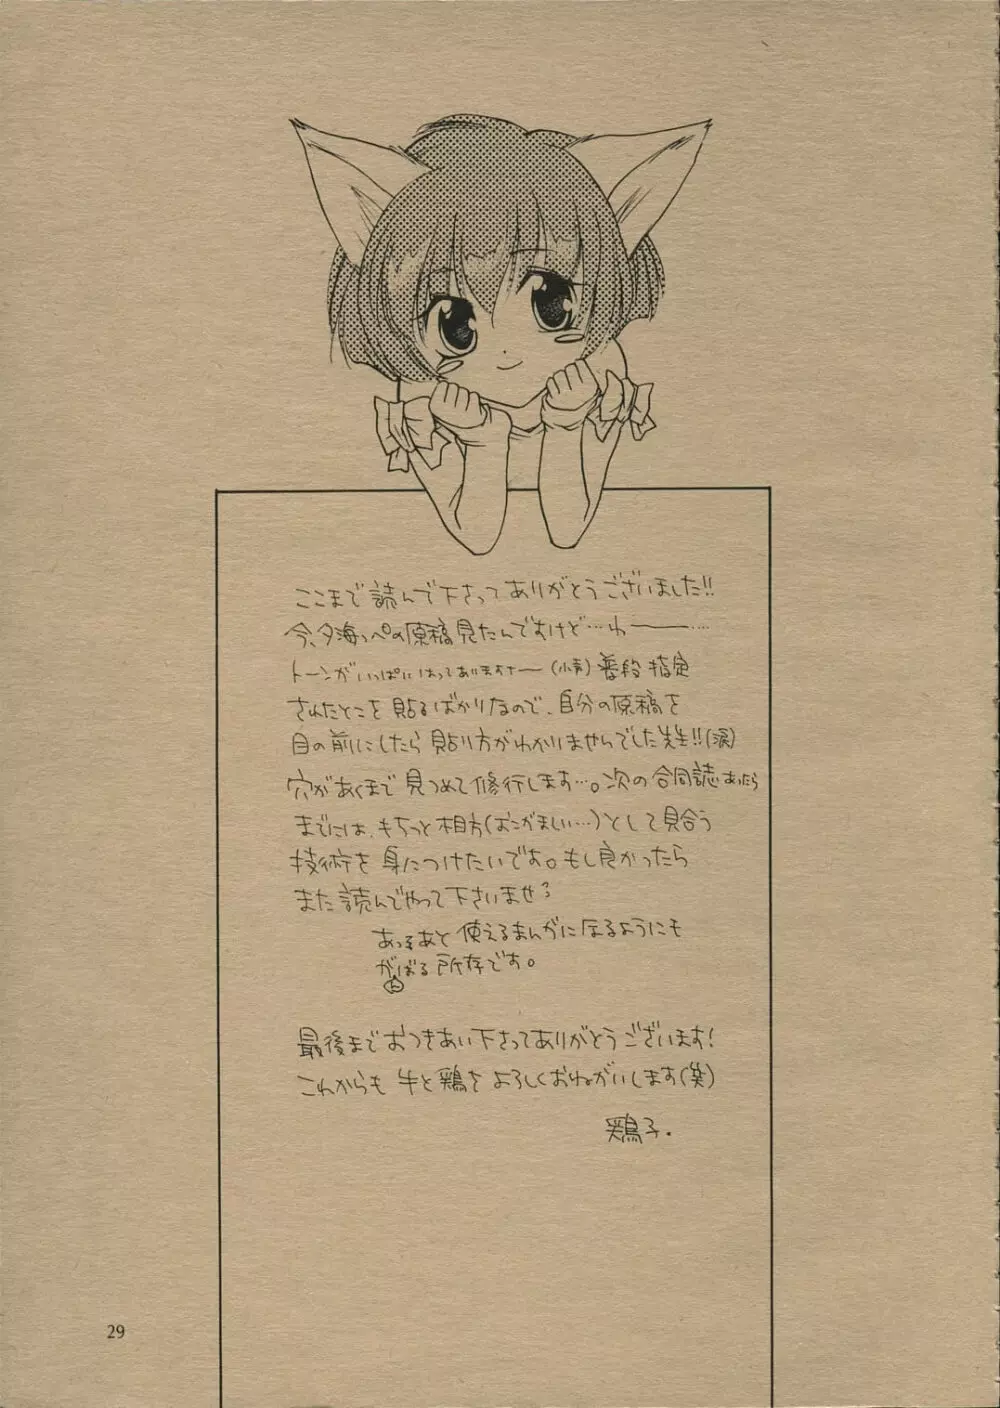 ここまで読んで下さってありがとうございました!!
今、夕海っぺの原稿見たんですけど…わーーー…
トーンがいっぱいはってありますナー(小声) 普段 指定
されたとこを 貼るばかりなので、自分の原稿を
目の前にしたら 貼り方がわかりませんでした先生!!(涙)
穴があくまで 見つめて修行します…。次の合同誌あったら
までには、もちっと相方(おこがましい…)として見合う
技術を 身につけたいです。もし良かったら
また読んでやって下さいませ?
あと 使えるまんがになるようにも
がんばる 所存です。
最後までおつきあい下さってありがとうございます!
これからも 牛と鶏を よろしくおねがいします(笑)
鶏子.
29